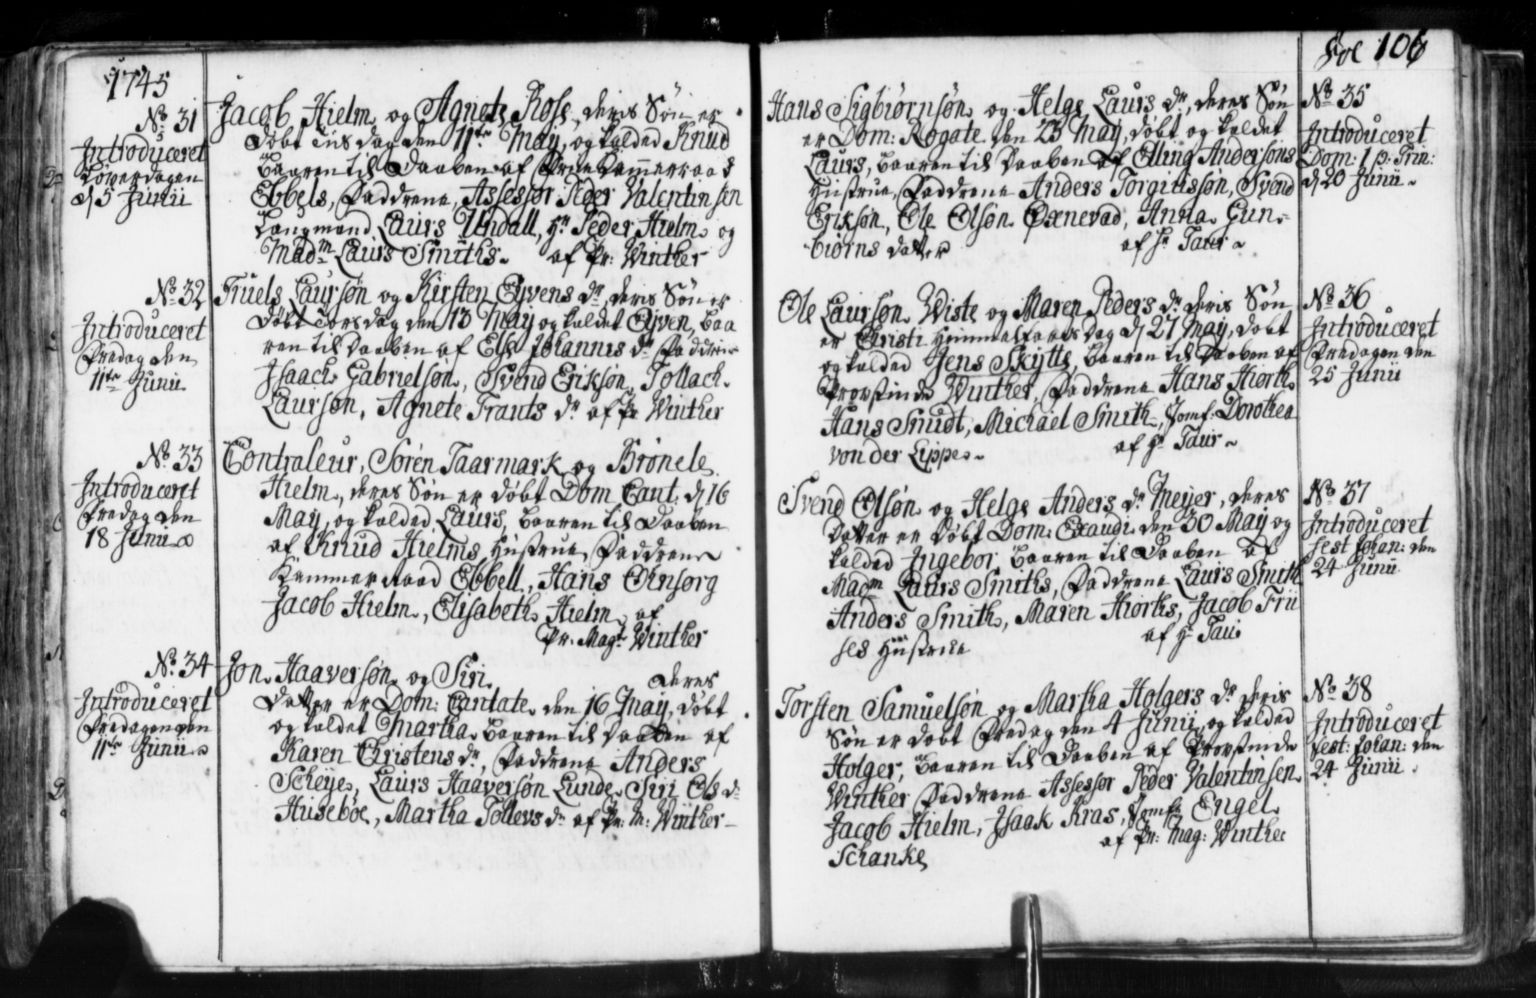 1745
No. 31
Introduceret
Löverdagen
d/ 5 Junii
Jacob Hielm og Agnete Rose, deris Søn er
døbt Tiisdag den 11te May, og kalded Knud
baaren til Daaben af Frue Cammerraad
Ebbels, Faddrene, Assessor Peder Valentinsen
Laugmand Laurs Undall, Hr Peder Hielm og
Madm Laurs Smiths. af Pr: Winther
No. 32
Introduceret
Fredag den
11te Junii
Truels Laursøn og Kirsten Eyvens dr, deris Søn er
døbt Torsdag den 13 May og kaldet Eyven, baa
ren til Daaben af Else Johannis dr Faddrene
Isaach Gabrielsøn, Svend Eriksøn, Tollach
Laursøn, Agnete Frants dr af Pr Winther
No. 33
Introduceret
Fredag den
18 Junii
Controleur, Søren Taarmark og Brønele
Hielm, deres Søn er døbt Dom Cant: d/ 16
May, og kaldед Laurs, baaren til Daaben
af Knud Hielms Hustrue, Faddrene
Kammerraad Ebbell, Hans Ohnsorg
Jacob Hielm, Elisabeth Hielm, af
Pr: Magr Winther
No. 34
Introduceret
Fredagen den
11te Junii
Jon Haaversøn og Siri deres
Datter er Dom: Cantate den 16 May, døbt
og kaldet Martha baaren til Daaben af
Karen Christens dr, Faddrene Anders
Scheye, Laurs Haaversøn Lunde, Siri Els dr
Huseböe, Martha Tollevs dr af Pr: M: Winther
Fol 106
Hans Sigbiørnsøn og Helge Laurs dr, deres Søn
er Dom: Rogate den 23 May, døbt og kaldet
Laurs, baaren til Daaben af Elling Andersøns
Hustrue, Faddrene Anders Torgiussøn, Svend
Eriksøn, Ole Olsøn Oxnevad, Anna Gun-
biørns datter af Hr Taur
No 35
Introduceret
Dom: 1 p: Trin:
d/ 20 Junii
Ole Laursøn Wiste og Maren Peders dr deris Søn
er Christi Himmelfarts Dag d/ 27 May, døbt
og kalded Jens Skytte, baaren til Daaben af
Provstinde Winther, Faddrene Hans Hiorth
Hans Smidt, Michael Smith, Jomf: Dorothea
von der Lippe af Hr Taur
No 36
Introduceret
Fredagen den
25 Junii
Svend Olsøn og Helge Anders dr Meyer, deres
Datter er døbt Dom: Exaudi den 30 May og
kaldед Ingebor, baaren til Daaben af
Madm Laurs Smiths, Faddrene Laurs Smith
Anders Smith, Maren Hiorths, Jacob Frii
ses Hustrue af Hr Taur
No 37
Introduceret
fest Johan: den
24 Junii
Torsten Samuelsøn og Martha Holgers dr deris
Søn er døbt Fredag den 4 Junii, og kaldед
Holger, baaren til Daaben af Provstinde
Winther Faddrene Assessor Peder Valentinsen
Jacob Hielm, Isaak Kras, Jomfr Engel
Schanke af Pr: Mag: Winther
No 38
Introduceret
Fest: Johan: den
24 Junii